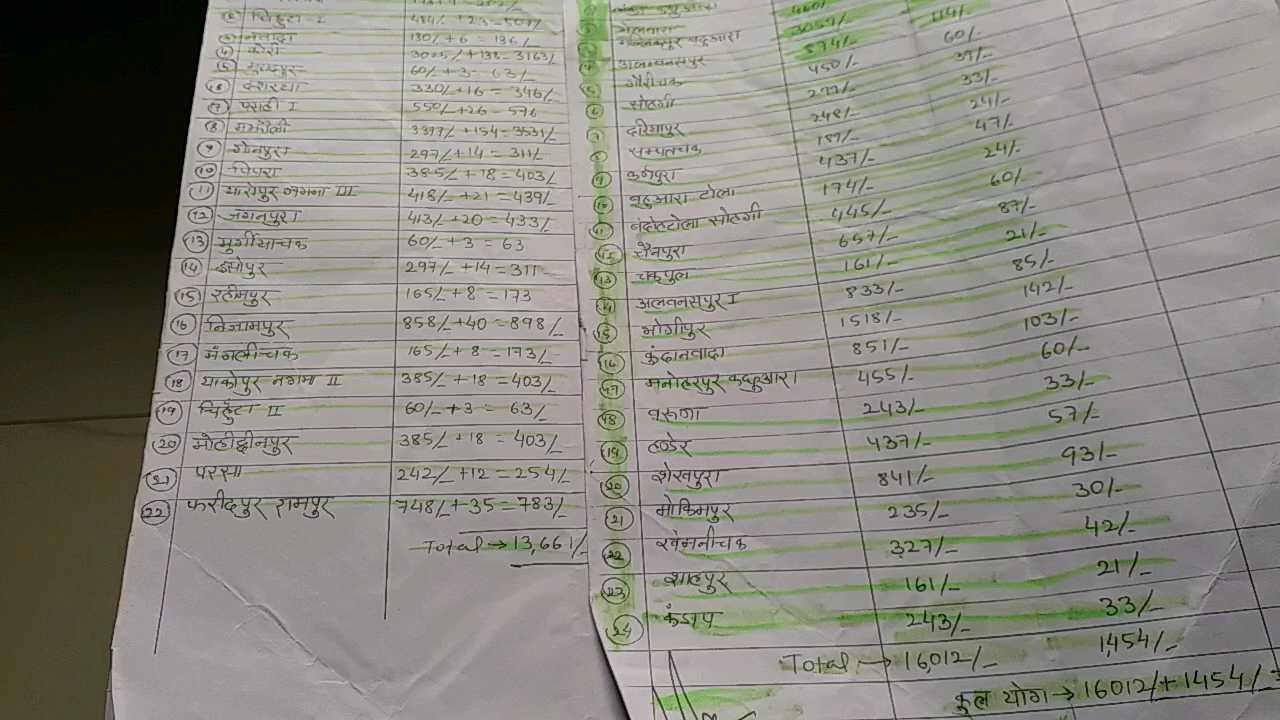 ② चिहुंटा-I 484/- +23=507/-
③ नेवादा 130/- +6 = 136/-
④ कोरा 3025/- +138= 3163/-
⑤ 60/- +3= 63/-
⑥ 330/- +16 = 346/-
⑦ परसा I 550/- +26= 576
⑧ मझौली 3377/- +154=3531/-
⑨ गोनपुरा 297/- +14 = 311/-
⑩ पिपरा 385/- +18 =403/-
⑪ याकोपुर नगमा III 418/- +21 =439/-
⑫ जगनपुरा 413/- +20 =433/-
⑬ मुर्गीयाचक 60/- +3 = 63
⑭ इसोपुर 297/- +14= 311
⑮ रहीमपुर 165/- +8 = 173
⑯ निजामपुर 858/- +40 = 898/-
⑰ मंगलीचक 165/- +8 =173/-
⑱ याकोपुर नगमा II 385/- +18 =403/-
⑲ चिहुंटा II 60/- +3 = 63/-
⑳ मोहीद्दीनपुर 385/- +18 = 403/-
㉑ परसा 242/- +12 = 254/-
㉒ फरीदपुर रामपुर 748/- +35=783/-
Total → 13,661/-
460/-
3057/- 114/-
874/- 60/-
④ अलावलपुर 450/- 39/-
⑤ गौरीचक 277/- 33/-
⑥ सोहगी 248/- 24/-
⑦ दरियापुर 187/- 47/-
⑧ सम्पतचक 437/- 24/-
⑨ कनपुरा 174/- 60/-
⑩ बहुआरा टोला 445/- 87/-
⑪ सोहगी 657/- 21/-
⑫ चैनपुरा 161/- 85/-
⑬ चकपुल 833/- 142/-
⑭ अलवनसपुर I 1518/- 103/-
⑮ भोगीपुर 851/- 60/-
⑯ कंदानवादा 455/- 33/-
⑰ मनोहरपुर कछुआरा 243/- 57/-
⑱ वरुणा 437/- 93/-
⑲ लण्डेर 841/- 30/-
⑳ शेखपुरा 235/- 42/-
㉑ मोकिमपुर 327/- 21/-
㉒ खेमनीचक 161/- 33/-
㉓ शाहपुर 243/- 1,454/-
㉔ कंडाप
Total → 16,012/-
कुल योग → 16012/- + 1454/- =